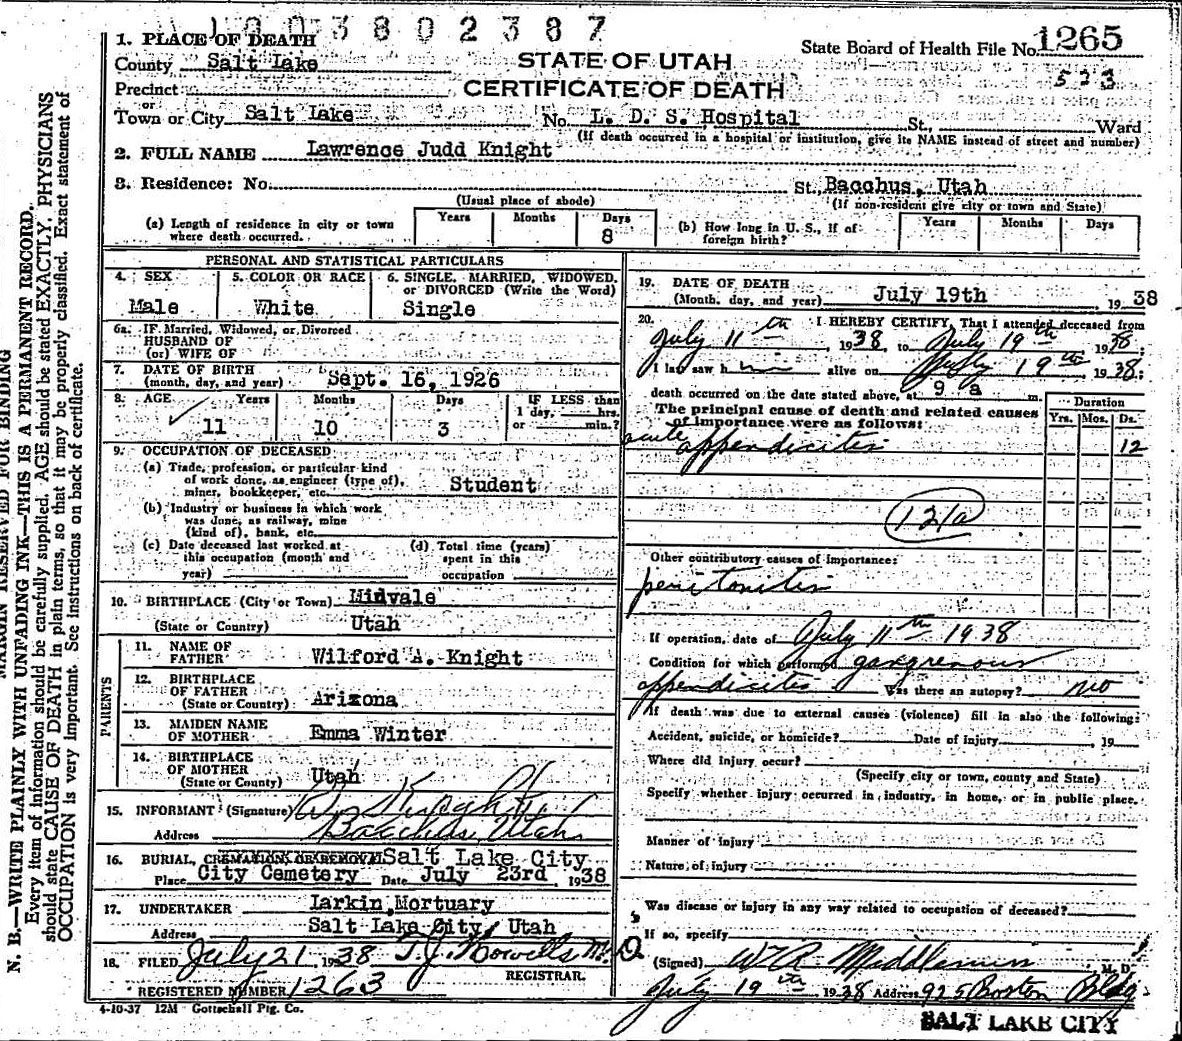 1003802387
1. PLACE OF DEATH
County Salt Lake
STATE OF UTAH
State Board of Health File No. 1265
Precinct
CERTIFICATE OF DEATH
523
or
Town or City Salt Lake No. L. D. S. Hospital St. Ward
(If death occurred in a hospital or institution, give its NAME instead of street and number)
2. FULL NAME Lawrence Judd Knight
3. Residence: No. St. Bacchus, Utah
(Usual place of abode) (If non-resident give city or town and State)
(a) Length of residence in city or town where death occurred. Years Months Days 8
(b) How long in U. S., if of foreign birth? Years Months Days
PERSONAL AND STATISTICAL PARTICULARS
4. SEX 5. COLOR OR RACE 6. SINGLE, MARRIED, WIDOWED,
or DIVORCED (Write the Word)
Male White Single
6a. IF Married, Widowed, or Divorced
HUSBAND OF
(or) WIFE OF
7. DATE OF BIRTH
(month, day, and year) Sept. 16, 1926
8. AGE Years Months Days IF LESS than
1 day, hrs.
11 10 3 or min.?
9. OCCUPATION OF DECEASED
(a) Trade, profession, or particular kind
of work done, as engineer (type of),
miner, bookkeeper, etc. Student
(b) Industry or business in which work
was done, as railway, mine
(kind of), bank, etc.
(c) Date deceased last worked at
this occupation (month and
year)
(d) Total time (years)
spent in this
occupation
10. BIRTHPLACE (City or Town) Midvale
(State or Country) Utah
PARENTS
11. NAME OF
FATHER Wilford A. Knight
12. BIRTHPLACE
OF FATHER
(State or Country) Arizona
13. MAIDEN NAME
OF MOTHER Emma Winter
14. BIRTHPLACE
OF MOTHER
(State or County) Utah
15. INFORMANT (Signature) Knight
Address Bacchus, Utah
16. BURIAL, CREMATION OR REMOVAL Salt Lake City
Place City Cemetery Date July 23rd, 1938
17. UNDERTAKER Larkin Mortuary
Address Salt Lake City, Utah
18. FILED July 21 1938 T. J. Howells M. D.
REGISTRAR.
REGISTERED NUMBER 1263
4-10-37 12M Gottschall Ptg. Co.
19. DATE OF DEATH
(Month, day, and year) July 19th, 1938
20. I HEREBY CERTIFY, That I attended deceased from
July 11th, 1938, to July 19th 1938;
I last saw him alive on July 19th 1938;
death occurred on the date stated above, at 9 a m.
The principal cause of death and related causes
of importance were as follows:
Duration
Yrs. Mos. Ds.
acute appendicitis 12
121a
Other contributory causes of importance:
peritonitis
If operation, date of July 11th 1938
Condition for which performed gangrenous
appendicitis Was there an autopsy? no
If death was due to external causes (violence) fill in also the following:
Accident, suicide, or homicide? Date of injury 19
Where did injury occur?
(Specify city or town, county and State)
Specify whether injury occurred in industry, in home, or in public place.
Manner of injury
Nature of injury
Was disease or injury in any way related to occupation of deceased?
If so, specify
(Signed) W R Middlemiss M. D.
July 19th, 1938 Address 925 Boston Bldg
SALT LAKE CITY
MARGIN RESERVED FOR BINDING
N. B.—WRITE PLAINLY WITH UNFADING INK—THIS IS A PERMANENT RECORD.
Every item of information should be carefully supplied. AGE should be stated EXACTLY. PHYSICIANS
should state CAUSE OF DEATH in plain terms, so that it may be properly classified. Exact statement of
OCCUPATION is very important. See instructions on back of certificate.